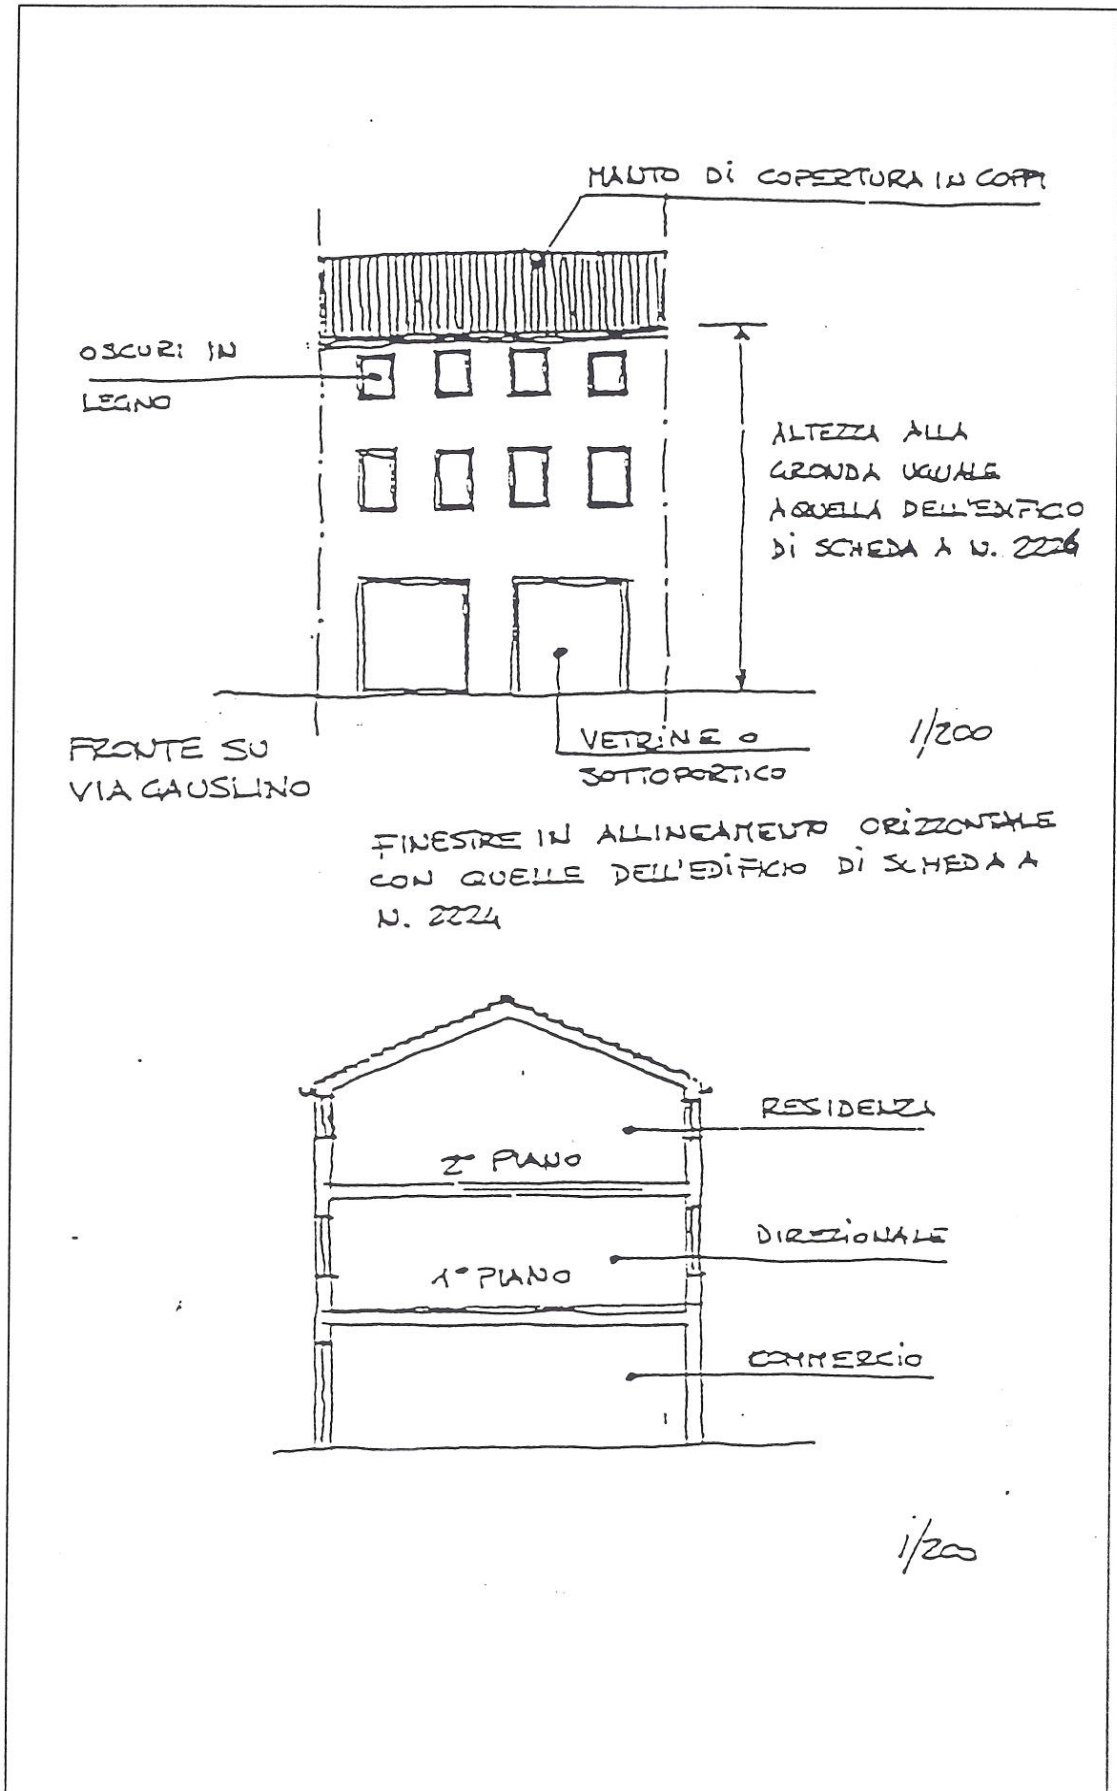 MANTO Di COPERTURA IN COPPI
OSCURI IN
LEGNO
ALTEZZA ALLA
GRONDA UGUALE
A QUELLA DELL'EDIFICO
Di SCHEDA A N. 2226
FRONTE SU
VIA GAUSLINO
VETRINE O
SOTTOPORTICO
1/200
FINESTRE IN ALLINEAMENTO ORIZZONTALE
CON QUELLE DELL'EDIFICIO Di SCHEDA A
N. 2224
RESIDENZA
2° PIANO
DIREZIONALE
1° PIANO
COMMERCIO
1/200